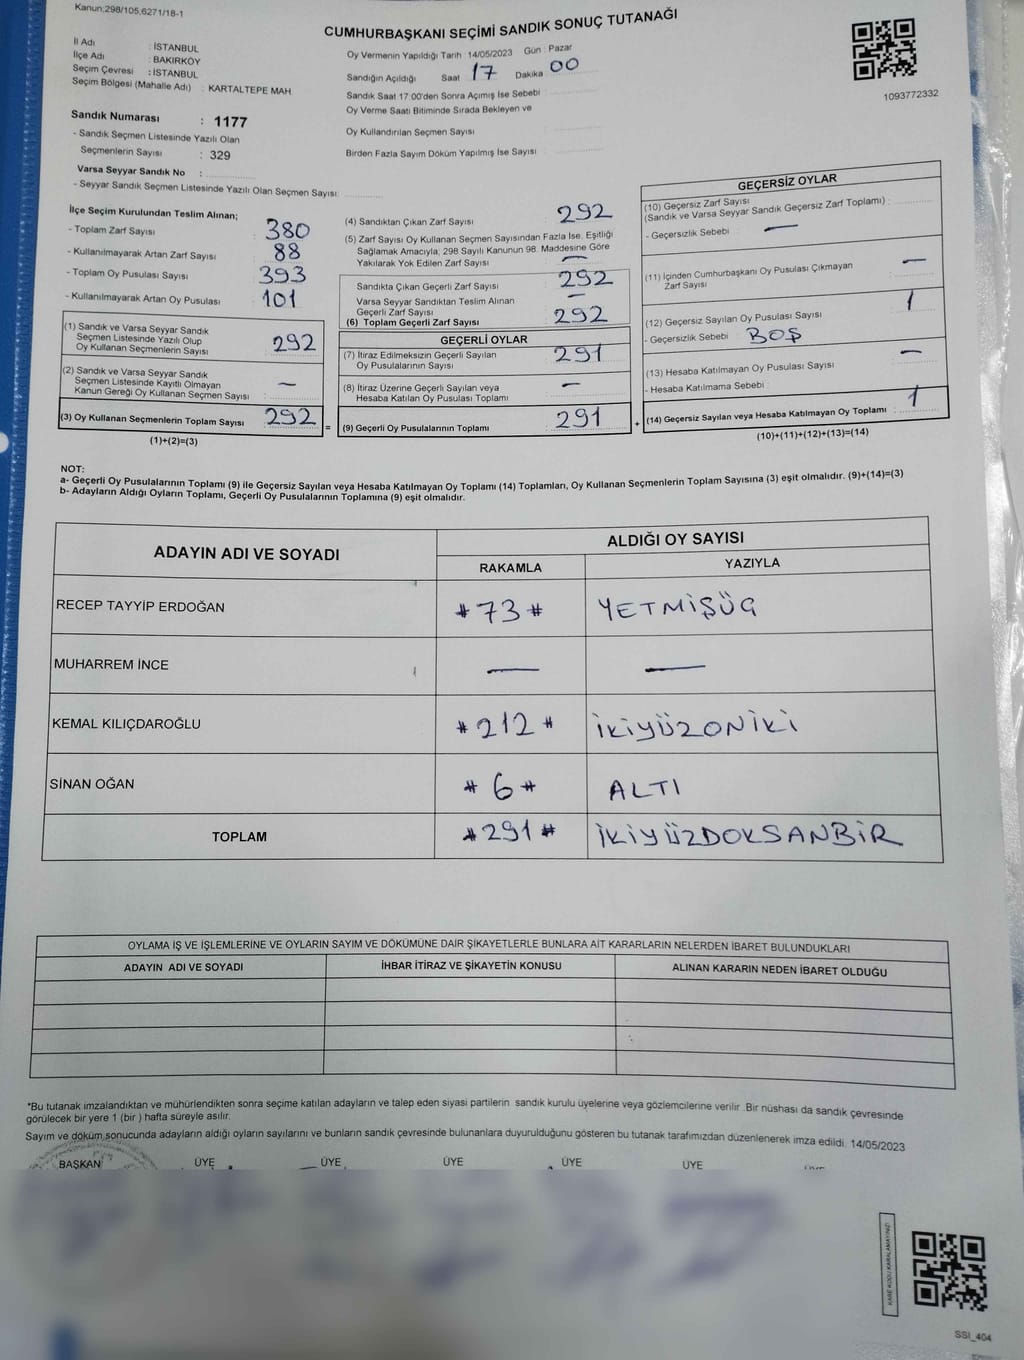 Kanun;298/105,6271/18-1
CUMHURBAŞKANI SEÇİMİ SANDIK SONUÇ TUTANAĞI
İl Adı : İSTANBUL
İlçe Adı : BAKIRKÖY
Seçim Çevresi : İSTANBUL
Seçim Bölgesi (Mahalle Adı) : KARTALTEPE MAH
Oy Vermenin Yapıldığı Tarih : 14/05/2023 Gün : Pazar
Sandığın Açıldığı Saat 17 Dakika 00
Sandık Saat 17:00'den Sonra Açımış İse Sebebi :
Oy Verme Saati Bitiminde Sırada Bekleyen ve
Oy Kullandırılan Seçmen Sayısı :
Birden Fazla Sayım Döküm Yapılmış İse Sayısı :
1093772332
Sandık Numarası : 1177
- Sandık Seçmen Listesinde Yazılı Olan
Seçmenlerin Sayısı : 329
Varsa Seyyar Sandık No :
- Seyyar Sandık Seçmen Listesinde Yazılı Olan Seçmen Sayısı:
İlçe Seçim Kurulundan Teslim Alınan;
- Toplam Zarf Sayısı : 380
- Kullanılmayarak Artan Zarf Sayısı : 88
- Toplam Oy Pusulası Sayısı : 393
- Kullanılmayarak Artan Oy Pusulası : 101
(1) Sandık ve Varsa Seyyar Sandık
Seçmen Listesinde Yazılı Olup
Oy Kullanan Seçmenlerin Sayısı : 292
(2) Sandık ve Varsa Seyyar Sandık
Seçmen Listesinde Kayıtlı Olmayan
Kanun Gereği Oy Kullanan Seçmen Sayısı : —
(3) Oy Kullanan Seçmenlerin Toplam Sayısı : 292
(1)+(2)=(3)
(4) Sandıktan Çıkan Zarf Sayısı : 292
(5) Zarf Sayısı Oy Kullanan Seçmen Sayısından Fazla İse, Eşitliği
Sağlamak Amacıyla; 298 Sayılı Kanunun 98. Maddesine Göre
Yakılarak Yok Edilen Zarf Sayısı : —
Sandıkta Çıkan Geçerli Zarf Sayısı : 292
Varsa Seyyar Sandıktan Teslim Alınan
Geçerli Zarf Sayısı : —
(6) Toplam Geçerli Zarf Sayısı : 292
GEÇERLİ OYLAR
(7) İtiraz Edilmeksizin Geçerli Sayılan
Oy Pusulalarının Sayısı : 291
(8) İtiraz Üzerine Geçerli Sayılan veya
Hesaba Katılan Oy Pusulası Toplamı : —
(9) Geçerli Oy Pusulalarının Toplamı : 291
GEÇERSİZ OYLAR
(10) Geçersiz Zarf Sayısı
(Sandık ve Varsa Seyyar Sandık Geçersiz Zarf Toplamı) :
- Geçersizlik Sebebi : —
(11) İçinden Cumhurbaşkanı Oy Pusulası Çıkmayan
Zarf Sayısı : —
(12) Geçersiz Sayılan Oy Pusulası Sayısı : 1
- Geçersizlik Sebebi : BOŞ
(13) Hesaba Katılmayan Oy Pusulası Sayısı : —
- Hesaba Katılmama Sebebi :
(14) Geçersiz Sayılan veya Hesaba Katılmayan Oy Toplamı : 1
(10)+(11)+(12)+(13)=(14)
NOT:
a- Geçerli Oy Pusulalarının Toplamı (9) ile Geçersiz Sayılan veya Hesaba Katılmayan Oy Toplamı (14) Toplamları, Oy Kullanan Seçmenlerin Toplam Sayısına (3) eşit olmalıdır. (9)+(14)=(3)
b- Adayların Aldığı Oyların Toplamı, Geçerli Oy Pusulalarının Toplamına (9) eşit olmalıdır.
ADAYIN ADI VE SOYADI ALDIĞI OY SAYISI
RAKAMLA YAZIYLA
RECEP TAYYİP ERDOĞAN #73# YETMİŞÜÇ
MUHARREM İNCE — —
KEMAL KILIÇDAROĞLU #212# İKİYÜZONİKİ
SİNAN OĞAN #6# ALTI
TOPLAM #291# İKİYÜZDOKSANBİR
OYLAMA İŞ VE İŞLEMLERİNE VE OYLARIN SAYIM VE DÖKÜMÜNE DAİR ŞİKAYETLERLE BUNLARA AİT KARARLARIN NELERDEN İBARET BULUNDUKLARI
ADAYIN ADI VE SOYADI İHBAR İTİRAZ VE ŞİKAYETİN KONUSU ALINAN KARARIN NEDEN İBARET OLDUĞU
*Bu tutanak imzalandıktan ve mühürlendikten sonra seçime katılan adayların ve talep eden siyasi partilerin sandık kurulu üyelerine veya gözlemcilerine verilir. Bir nüshası da sandık çevresinde
görülecek bir yere 1 (bir) hafta süreyle asılır.
Sayım ve döküm sonucunda adayların aldığı oyların sayılarını ve bunların sandık çevresinde bulunanlara duyurulduğunu gösteren bu tutanak tarafımızdan düzenlenerek imza edildi. 14/05/2023
BAŞKAN ÜYE ÜYE ÜYE ÜYE ÜYE
KARE KODU KARALAMAYINIZ!
SSI_404